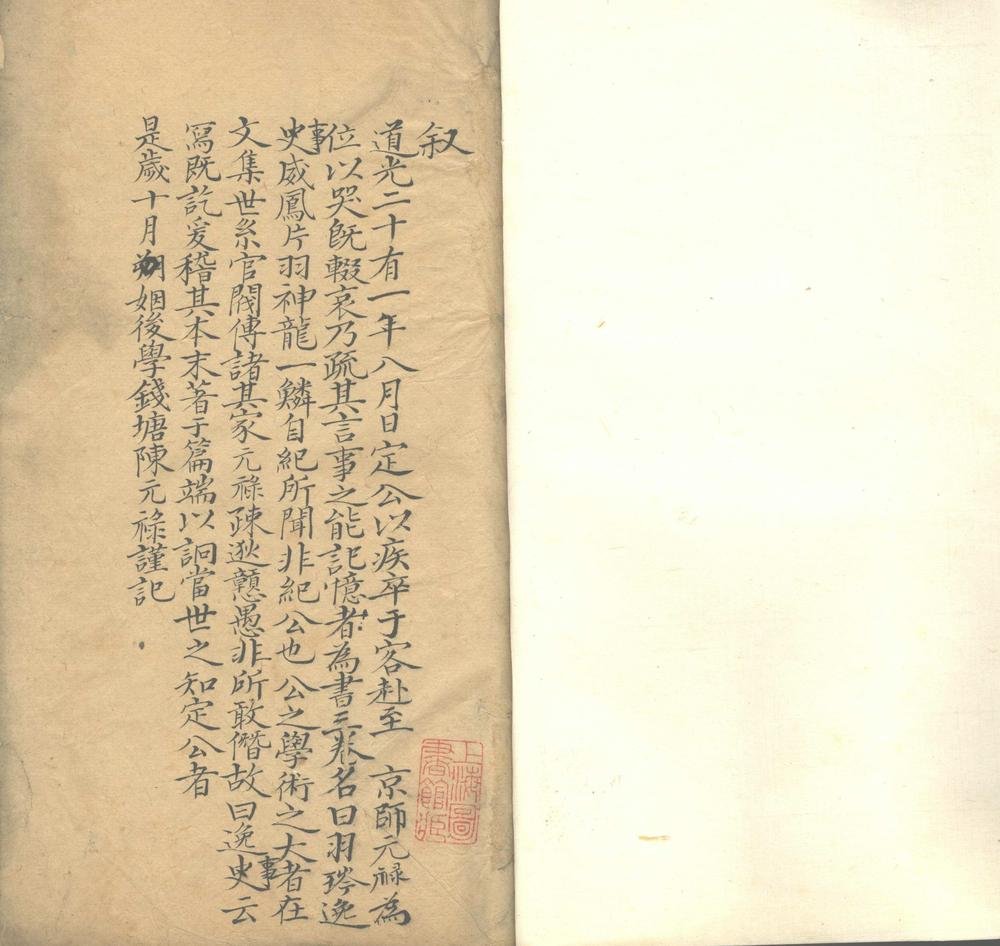 叙
道光二十有一年八月日定公以疾卒于客赴至 京師元祿為
位以哭旣輟哀乃疏其言事之能記憶者為書三卷名曰羽琌逸
史事威鳳片羽神龍一鱗自紀所聞非紀公也公之學術之大者在
文集世系官閥傳諸其家元祿疎逖戇愚非所敢僭故曰逸史事云
寫既訖爰稽其本末著于篇端以詗當世之知定公者
是歲十月朔姻後學錢塘陳元祿謹記
上海圖
書館藏